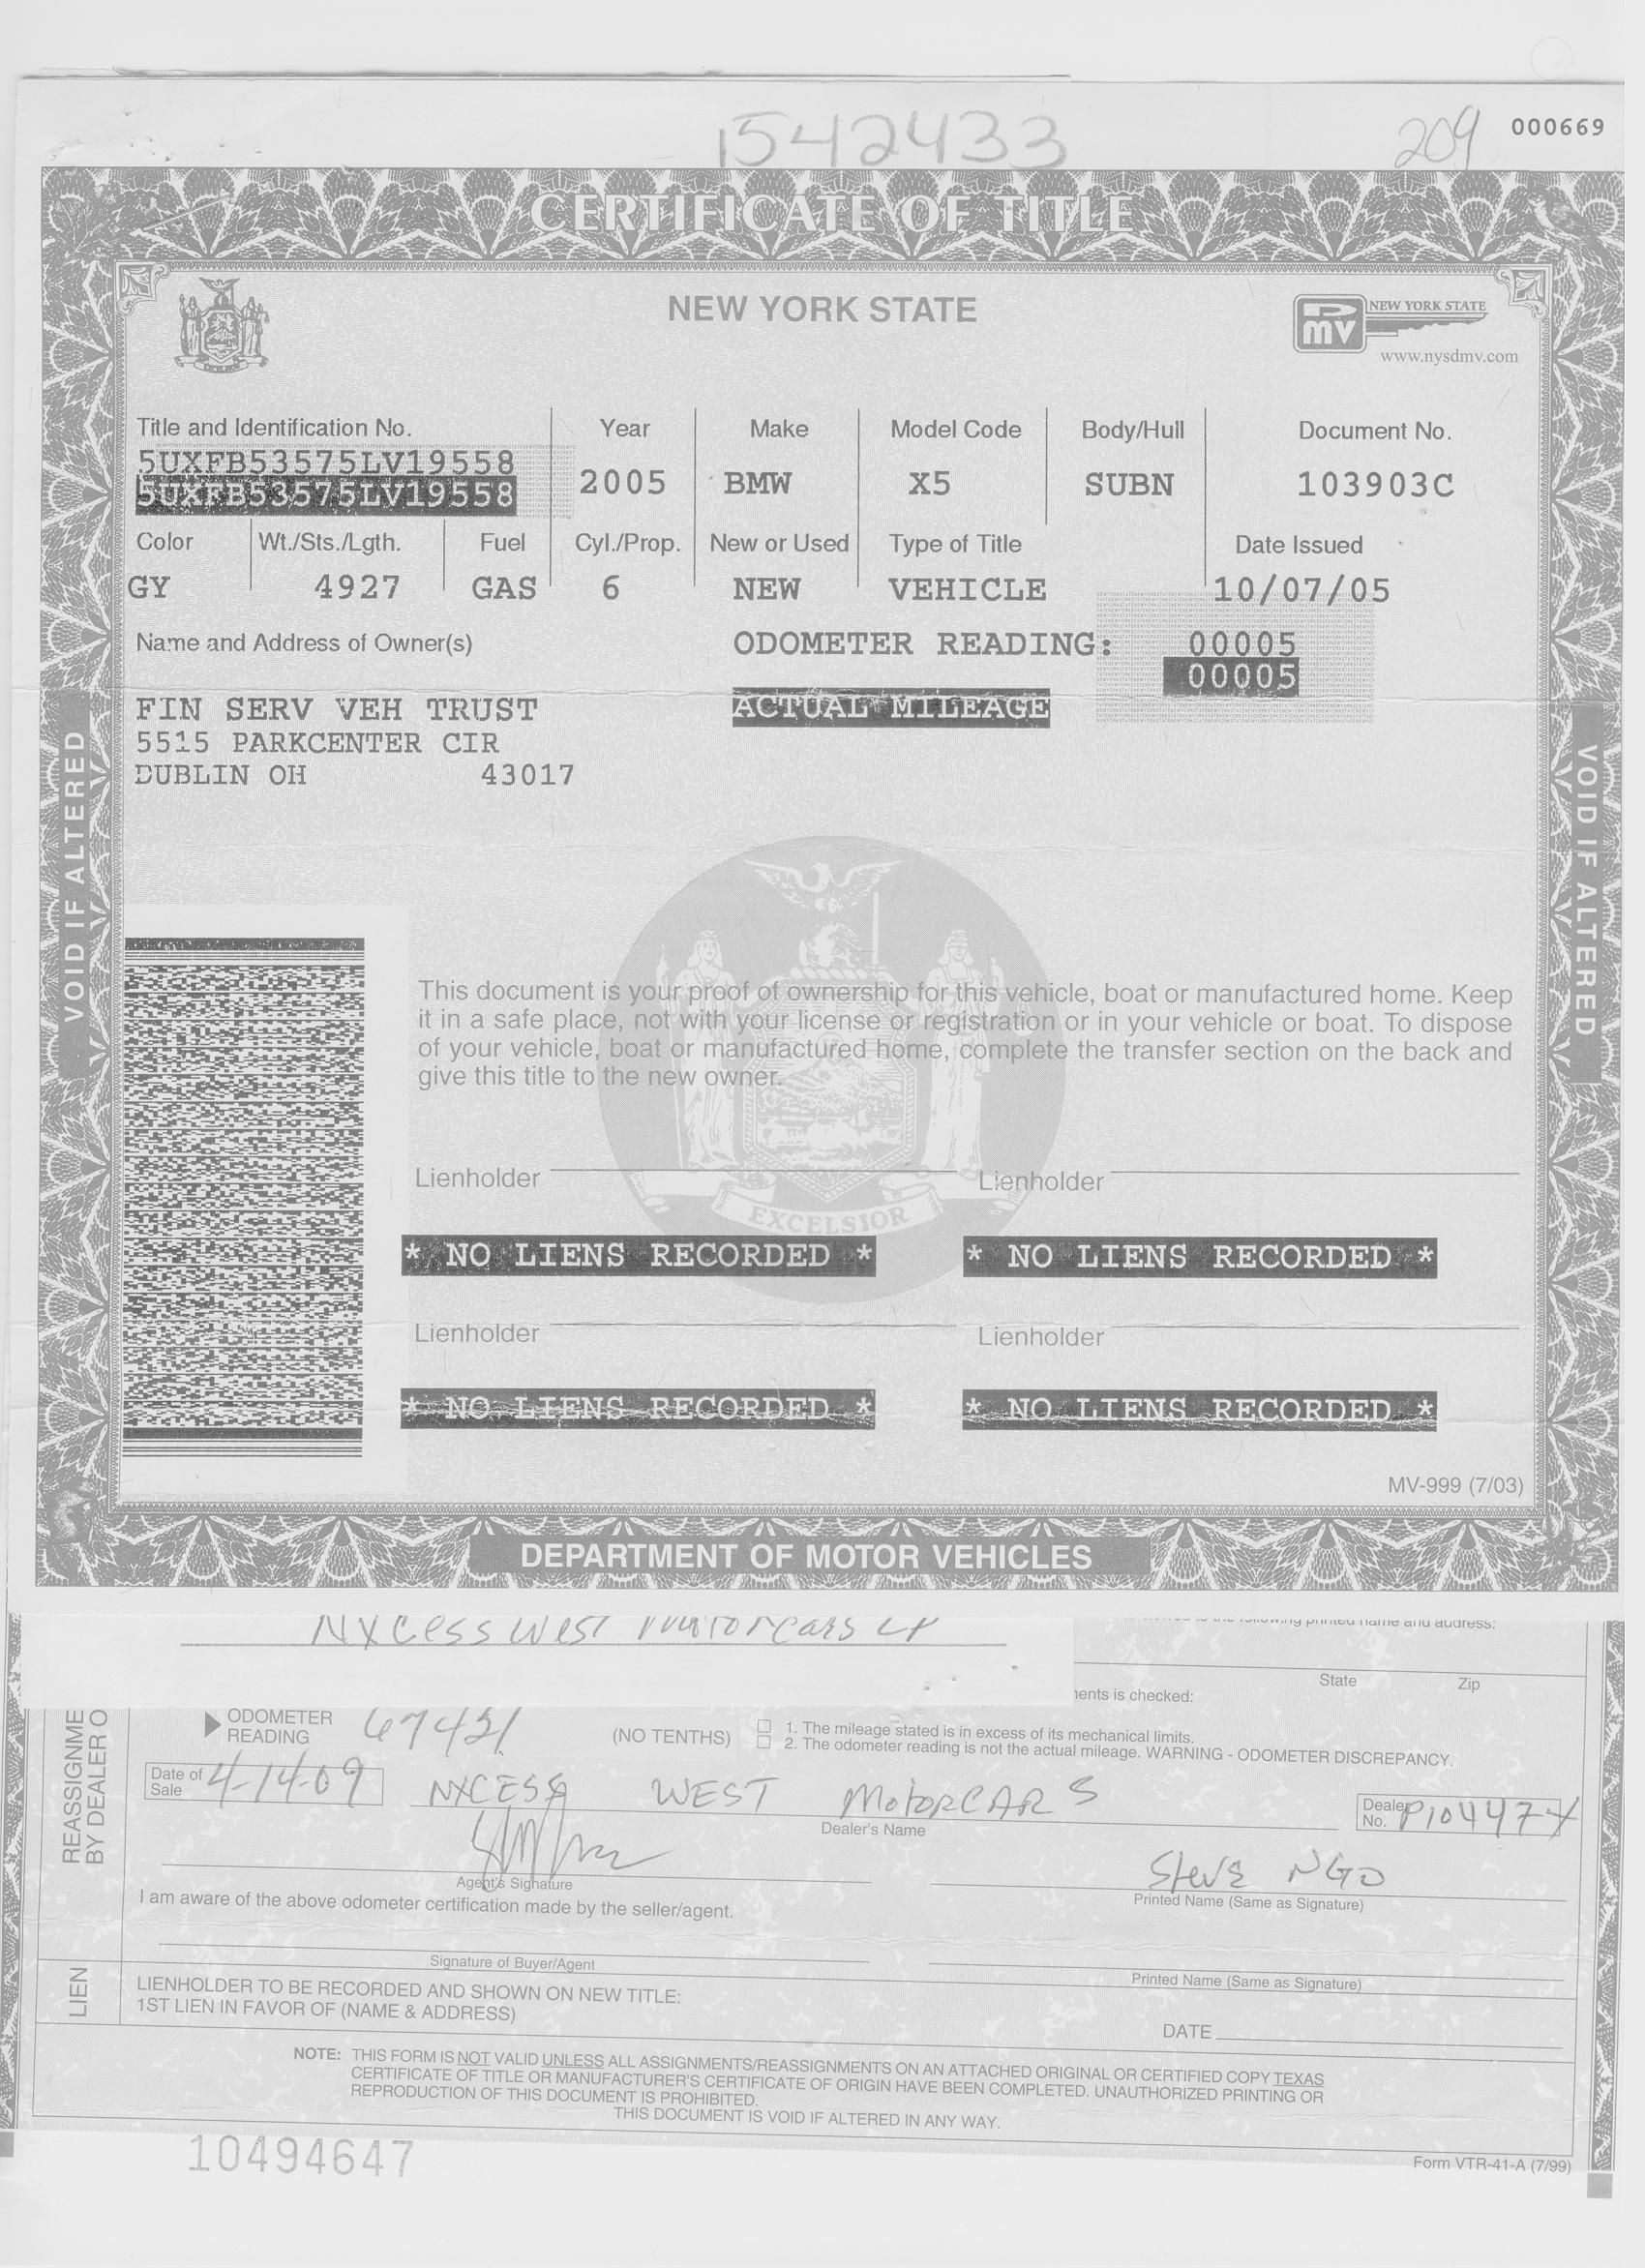 1542433
209 000669
CERTIFICATE OF TITLE
NEW YORK STATE
DMV NEW YORK STATE
www.nysdmv.com
Title and Identification No. Year Make Model Code Body/Hull Document No.
5UXFB53575LV19558
5UXFB53575LV19558 2005 BMW X5 SUBN 103903C
Color Wt./Sts./Lgth. Fuel Cyl./Prop. New or Used Type of Title Date Issued
GY 4927 GAS 6 NEW VEHICLE 10/07/05
Name and Address of Owner(s) ODOMETER READING: 00005
00005
FIN SERV VEH TRUST ACTUAL MILEAGE
5515 PARKCENTER CIR
DUBLIN OH 43017
VOID IF ALTERED
VOID IF ALTERED
This document is your proof of ownership for this vehicle, boat or manufactured home. Keep
it in a safe place, not with your license or registration or in your vehicle or boat. To dispose
of your vehicle, boat or manufactured home, complete the transfer section on the back and
give this title to the new owner.
Lienholder Lienholder
EXCELSIOR
* NO LIENS RECORDED * * NO LIENS RECORDED *
Lienholder Lienholder
* NO LIENS RECORDED * * NO LIENS RECORDED *
MV-999 (7/03)
DEPARTMENT OF MOTOR VEHICLES
NXCess West Motorcars LP
following printed name and address:
State Zip
ents is checked:
REASSIGNME
BY DEALER O
ODOMETER
READING 67421 (NO TENTHS)
1. The mileage stated is in excess of its mechanical limits.
2. The odometer reading is not the actual mileage. WARNING - ODOMETER DISCREPANCY.
Date of
Sale 4-14-09 NXCESS WEST MotorCARS Dealer
No. P104474
Dealer's Name
Steve NGO
Agent's Signature Printed Name (Same as Signature)
I am aware of the above odometer certification made by the seller/agent.
Signature of Buyer/Agent Printed Name (Same as Signature)
LIEN
LIENHOLDER TO BE RECORDED AND SHOWN ON NEW TITLE:
1ST LIEN IN FAVOR OF (NAME & ADDRESS)
DATE
NOTE: THIS FORM IS NOT VALID UNLESS ALL ASSIGNMENTS/REASSIGNMENTS ON AN ATTACHED ORIGINAL OR CERTIFIED COPY TEXAS
CERTIFICATE OF TITLE OR MANUFACTURER'S CERTIFICATE OF ORIGIN HAVE BEEN COMPLETED. UNAUTHORIZED PRINTING OR
REPRODUCTION OF THIS DOCUMENT IS PROHIBITED.
THIS DOCUMENT IS VOID IF ALTERED IN ANY WAY.
10494647
Form VTR-41-A (7/99)